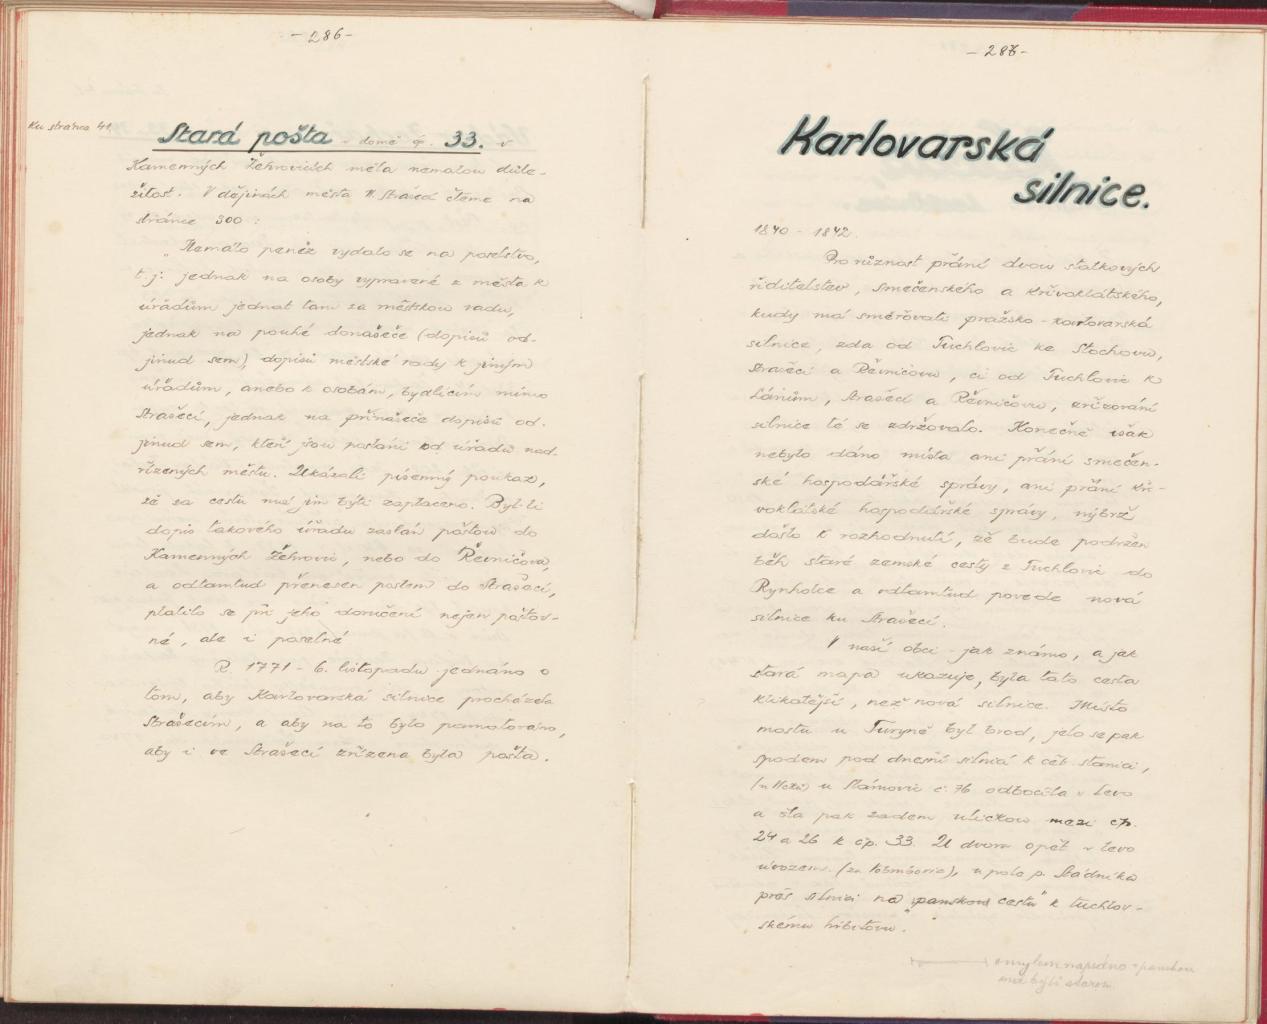 - 286 -
Ku stránce 41.
Stará pošta v domě čp. 33. v
Kamenných Žehrovicích měla nemalou důle-
žitost. V dějinách města N. Strašecí čteme na
stránce 300 :
„Nemálo peněz vydalo se na poselstvo,
t. j. jednak na osoby vypravené z města k
úřadům jednat tam za městskou radu,
jednak na pouhé donašeče (dopisů od-
jinud sem), dopisů městské rady k jiným
úřadům, anebo k osobám, bydlícím mimo
Strašecí, jednak na přinašeče dopisů od-
jinud sem, kteří jsou posláni od úřadů nad-
řízených městu. Ukázali písemný poukaz,
že za cestu má jim býti zaplaceno. Byl-li
dopis takového úřadu zaslán poštou do
Kamenných Žehrovic, nebo do Řevničova,
a odtamtud přenesen poslem do Strašecí,
platilo se při jeho doručení nejen poštov-
né, ale i poselné
R. 1771 - 6. listopadu jednáno o
tom, aby Karlovarská silnice procházela
Strašecím, a aby na to bylo pamatováno,
aby i ve Strašecí zřízena byla pošta.
- 287 -
Karlovarská
silnice.
1840 - 1842.
Pro různost přání dvou statkových
ředitelstev, smečenského a křivoklátského,
kudy má směřovati pražsko-karlovarská
silnice, zda od Tuchlovic ke Stochovu,
Strašecí a Řevničovu, či od Tuchlovic k
Lánům, Strašecí a Řevničovu, zřizování
silnice té se zdržovalo. Konečně však
nebylo dáno místa ani přání smečen-
ské hospodářské správy, ani přání kři-
voklátské hospodářské správy, nýbrž
došlo k rozhodnutí, že bude podržen
běh staré zemské cesty z Tuchlovic do
Rynholce a odtamtud povede nová
silnice ku Strašecí.
V naší obci - jak známo, a jak
stará mapa ukazuje, byla tato cesta
klikatější, než nová silnice. Místo
mostu u Turyně byl brod, jelo se pak
spodem pod dnešní silnicí k čet. stanici,
u Slámovic č. 76 odbočila v levo
a šla pak zadem uličkou mezi čp.
24 a 26 k čp. 33. U dvora opět v levo
úvozem, u pole p. Sládníka
přes silnici na „panskou cestu" k tuchlov-
skému hřbitovu.
omylem napsáno - panskou
má býti starou